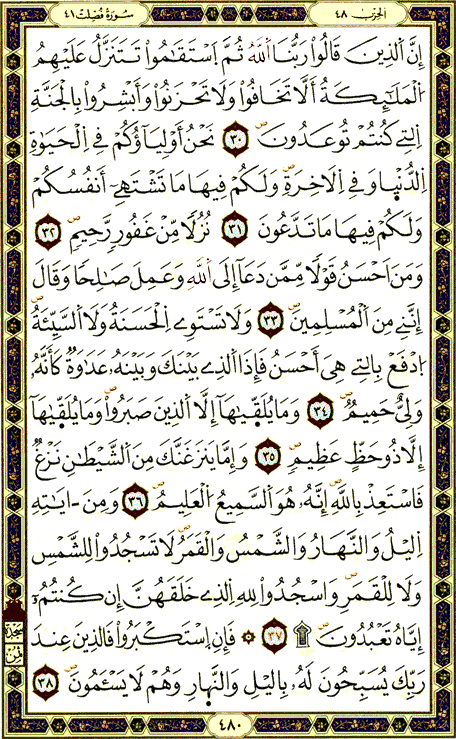 الحزب ٤٨
سورة فصلت ٤١
إِنَّ اَ۬لذِينَ قَالُواْ رَبُّنَا اَ۬للَّهُ ثُمَّ اَ۪سْتَقَٰمُواْ تَتَنَزَّلُ عَلَيْهِمُ
اُ۬لْمَلَٰٓئِكَةُ أَلَّا تَخَافُواْ وَلَا تَحْزَنُواْ وَأَبْشِرُواْ بِالْجَنَّةِ
اِ۬لتِے كُنتُمْ تُوعَدُونَۖ ٣٠ نَحْنُ أَوْلِيَآؤُكُمْ فِے اِ۬لْحَيَوٰةِ
اِ۬لدُّنْي۪ا وَفِے اِ۬لَاخِرَةِۖ وَلَكُمْ فِيهَا مَا تَشْتَهِےٓ أَنفُسُكُمْ
وَلَكُمْ فِيهَا مَا تَدَّعُونَ ٣١ نُزُلاٗ مِّنْ غَفُورٖ رَّحِيمٖۖ ٣٢
وَمَنَ اَحْسَنُ قَوْلاٗ مِّمَّن دَعَآ إِلَى اَ۬للَّهِ وَعَمِلَ صَٰلِحاٗ وَقَالَ
إِنَّنِے مِنَ اَ۬لْمُسْلِمِينَۖ ٣٣ وَلَا تَسْتَوِے اِ۬لْحَسَنَةُ وَلَا اَ۬لسَّيِّئَةُۖ
اُ۪دْفَعْ بِالتِے هِيَ أَحْسَنُ فَإِذَا اَ۬لذِے بَيْنَكَ وَبَيْنَهُۥ عَدَٰوَةٞ كَأَنَّهُۥ
وَلِيٌّ حَمِيمٞۖ ٣٤ وَمَا يُلَقّ۪يٰهَآ إِلَّا اَ۬لذِينَ صَبَرُواْۖ وَمَا يُلَقّ۪يٰهَآ
إِلَّا ذُو حَظٍّ عَظِيمٖۖ ٣٥ وَإِمَّا يَنزَغَنَّكَ مِنَ اَ۬لشَّيْطَٰنِ نَزْغٞ
فَاسْتَعِذْ بِاللَّهِۖ إِنَّهُۥ هُوَ اَ۬لسَّمِيعُ اُ۬لْعَلِيمُۖ ٣٦ وَمِنَ اٰيَٰتِهِ
اِ۬ليْلُ وَالنَّهَارُ وَالشَّمْسُ وَالْقَمَرُۖ لَا تَسْجُدُواْ لِلشَّمْسِ
وَلَا لِلْقَمَرِۖ وَاسْجُدُواْ لِلهِ اِ۬لذِے خَلَقَهُنَّ إِن كُنتُمُۥٓ
إِيَّاهُ تَعْبُدُونَۖ ۩ ٣٧ ۞ فَإِنِ اِ۪سْتَكْبَرُواْ فَالذِينَ عِندَ
رَبِّكَ يُسَبِّحُونَ لَهُۥ بِاليْلِ وَالنَّه۪ارِ وَهُمْ لَا يَسْـَٔمُونَۖ ٣٨
سجدة
٤٨٠